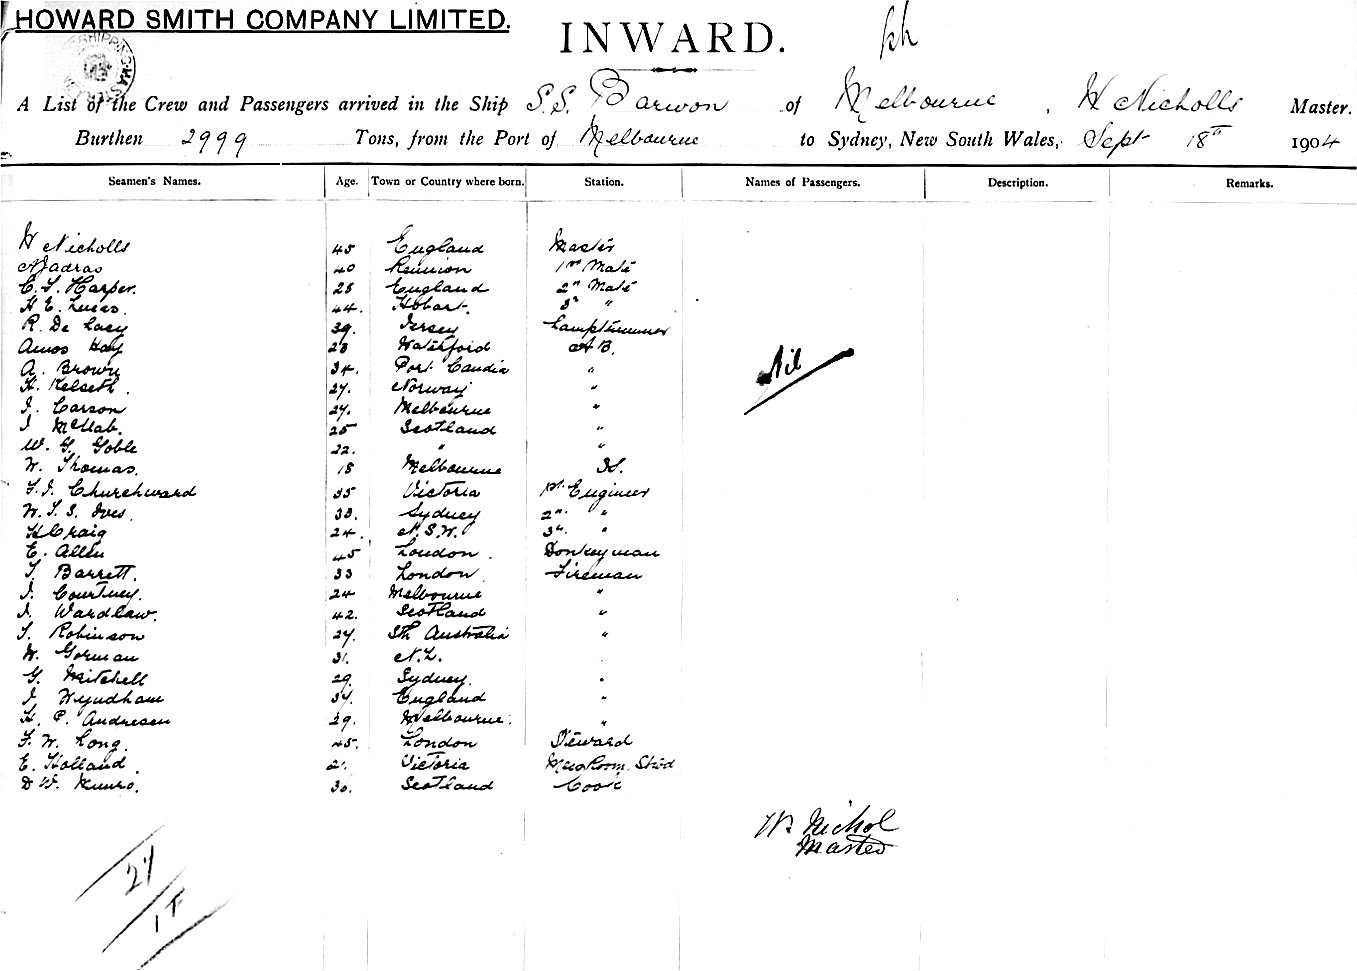 HOWARD SMITH COMPANY LIMITED.
INWARD.
A List of the Crew and Passengers arrived in the Ship S.S. Barwon of Melbourne, H Nicholls Master.
Burthen 2999 Tons, from the Port of Melbourne to Sydney, New South Wales, Sept 18th 1904
Seamen's Names. Age. Town or Country where born. Station. Names of Passengers. Description. Remarks.
H Nicholls 45 England Master
40 Reunion 1st Mate
C. S. Harper. 28 England 2nd Mate
H E. Lucas. 44. Hobart. 3rd "
R. De Lacy 39. Jersey Lamptrimmer
Amos Hay 23 Watchford A B.
A. Brown 34. Port Caudia "
H. Kelseth. 27. Norway "
J. Carson 27. Melbourne "
J McNab. 25 Scotland "
W. G. Goble 22. " "
W. Thomas. 18 Melbourne
F. J. Churchward 35 Victoria 1st Engineer
W. T. S. Ives. 33. Sydney 2nd "
H Craig 24. N.S.W. 3rd "
E. Allen 45 London. Donkeyman
T. Barrett. 33 London. Fireman
J. Courtney. 24 Melbourne "
J. Wardlaw. 42. Scotland "
T. Robinson 27. Sth Australia "
W. Gorman 31. N.Z. "
G. Mitchell 29. Sydney. "
J. Wyndham 34. England "
H. P. Andresen 29. Melbourne. "
F. W. Long. 45. London Steward
E. Holland. 21. Victoria Messroom Stwd
D W. Munro. 30. Scotland Cook
Nil
H. Nichol
Master
27